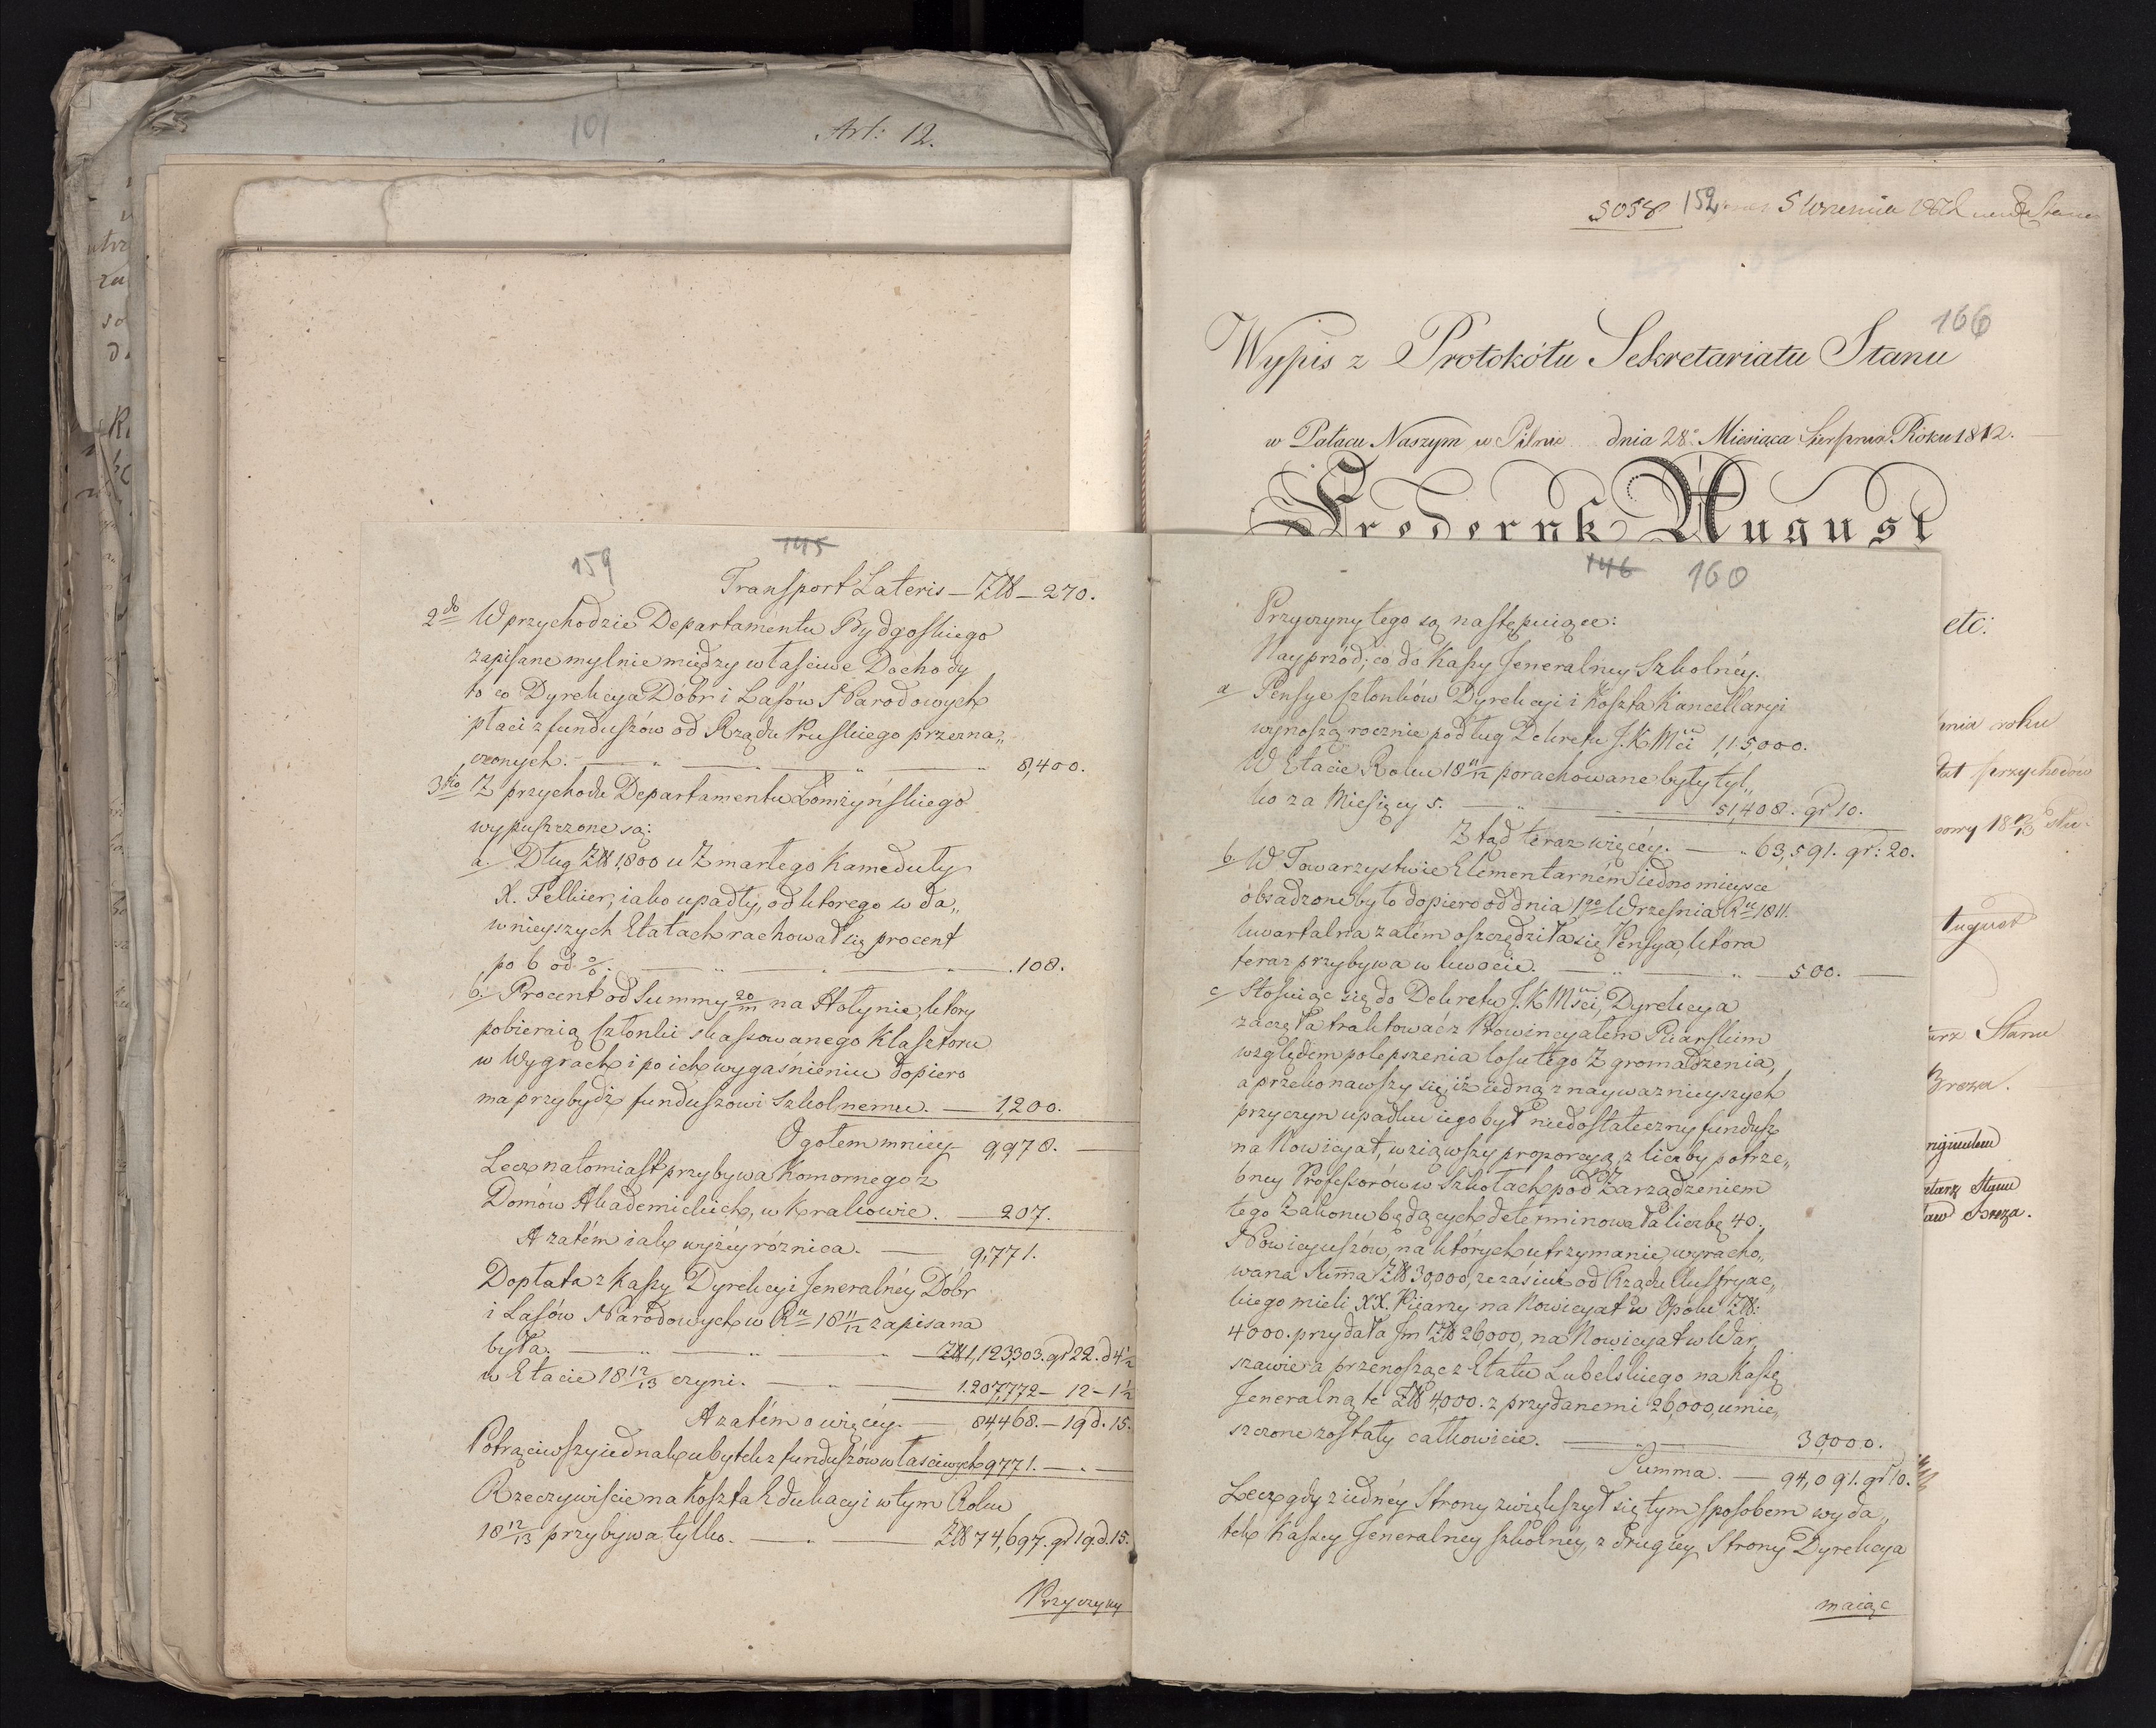 101
Art: 12.
159
145
Transport Lateris — Złł — 270.
2do W przychodzie Departamentu Bydgoskiego
zapisane mylnie między właściwe Dochody
to co Dyrekcya Dóbr i Lasów Narodowych
płaci z funduszów od Rządu Pruskiego przezna„
czonych. — „ — „ — 8,400.
3tio Z przychodu Departamentu Łomżyńskiego
wypuszczone są:
a. Dług Złł 1,800 u Zmarłego Kameduły
X. Felkier, iako upadły, od ktorego w da„
wnieyszych Etatach rachował się procent
po 6 od %. — „ — „ — 108.
b. Procent od Summy 20/m na Hołynie, ktory
pobieraią Członki skassowanego Klasztoru
w Wygrach i po ich wygaśnieniu dopiero
ma przybydź funduszowi Szkolnemu. — 1,200.
Ogołem mniey 9,978. —
Lecz natomiast przybywa Komornego z
Domów Akademickich, w Krakowie. — 207.
A zatém iak wyżéy różnica. — 9,771.
Dopłata z Kassy Dyrekcyi Jeneralnéy Dóbr
i Lasów Narodowych w Ru 18 11/12 zapisana
była. — „ — „ — Złł 1,123,303. gr 22. d 4 1/2
w Etacie 18 12/13 czyni. — 1.207,772 — 12 — 1 1/2
A zatém o więcéy. — 84,468. — 19 d. 15.
Potrąciwszy iednak ubytek z funduszów właściwych 9771. — . —
Rzeczywiscie na Koszta Edukacyi w tym Roku
18 12/13 przybywa tylko. — . — Złł 74,697. gr 19. d. 15.
Przyczyny
5058 152 5 Wrzesnia
166
Wypis z Protokółu Sekretariatu Stanu
w Pałacu Naszym w Pilnic dnia 28o Miesiąca Sierpnia Roku 1812.
Fryderyk August
146 160
Przyczyny tego są następuiące:
Nayprzód; co do Kassy Jeneralney Szkolnéy.
a/ Pensye Członków Dyrekcyi i Koszta Kancellaryi
wynoszą rocznie podług Dekretu J. K Mci 115000.
W Etacie Roku 18 11/12 porachowane były tyl„
ko za Miesięcy 5. — „ — 51,408. gr 10.
Ztąd teraz więcéy. — „ 63,591. gr: 20.
b/ W Towarzystwie Elementarném iedno mieysce
obsadzone było dopiero od dnia 1go Września Ru 1811.
kwartalna zatém oszczędziła się Pensya, która
teraz przybywa w kwocie. — „ — „ — 500. —
c/ Stosuiąc się do Dekretu J. K Msci, Dyrekcya
zaczęła traktować z Prowincyałem Piiarskim
względem polepszenia losu tego Zgromadzenia,
a przekonawszy się, iż iedną z nayważnieyszych
przyczyn upadku iego był niedostateczny fundusz
na Nowicyat, wziąwszy proporcyą z liczby potrze„
bney Professorów w Szkołach pod Zarządzeniem
tego Zakonu będących determinowała liczbę 40.
Nowicyuszów, na których utrzymanie wyracho„
wana Summa Złł 30,000, że zaś iuż od Rządu Austryac„
kiego mieli XX. Piiarzy na Nowicyat w Opolu Złł:
4000. przydała Im Złł 26000, na Nowicyat w War„
szawie a przenosząc z Etatu Lubelskiego na Kassę
Jeneralną te Złł 4,000. z przydanemi 26,000, umie„
szczone zostały całkowicie. — „ — 30,000.
Summa. — 94,091. gr 10.
Lecz gdy z iednéy Strony zwiększył się tym sposobem wyda„
tek Kassy Jeneralney Szkolnéy, z drugiey Strony Dyrekcya
maiąc
etc:
roku
przychodów
August
Stanu
Breza.
Stanu
Breza.